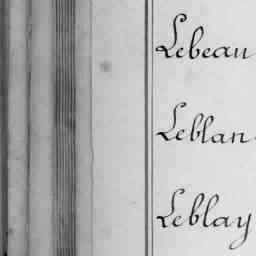 Lebeau
Leblan
Leblay